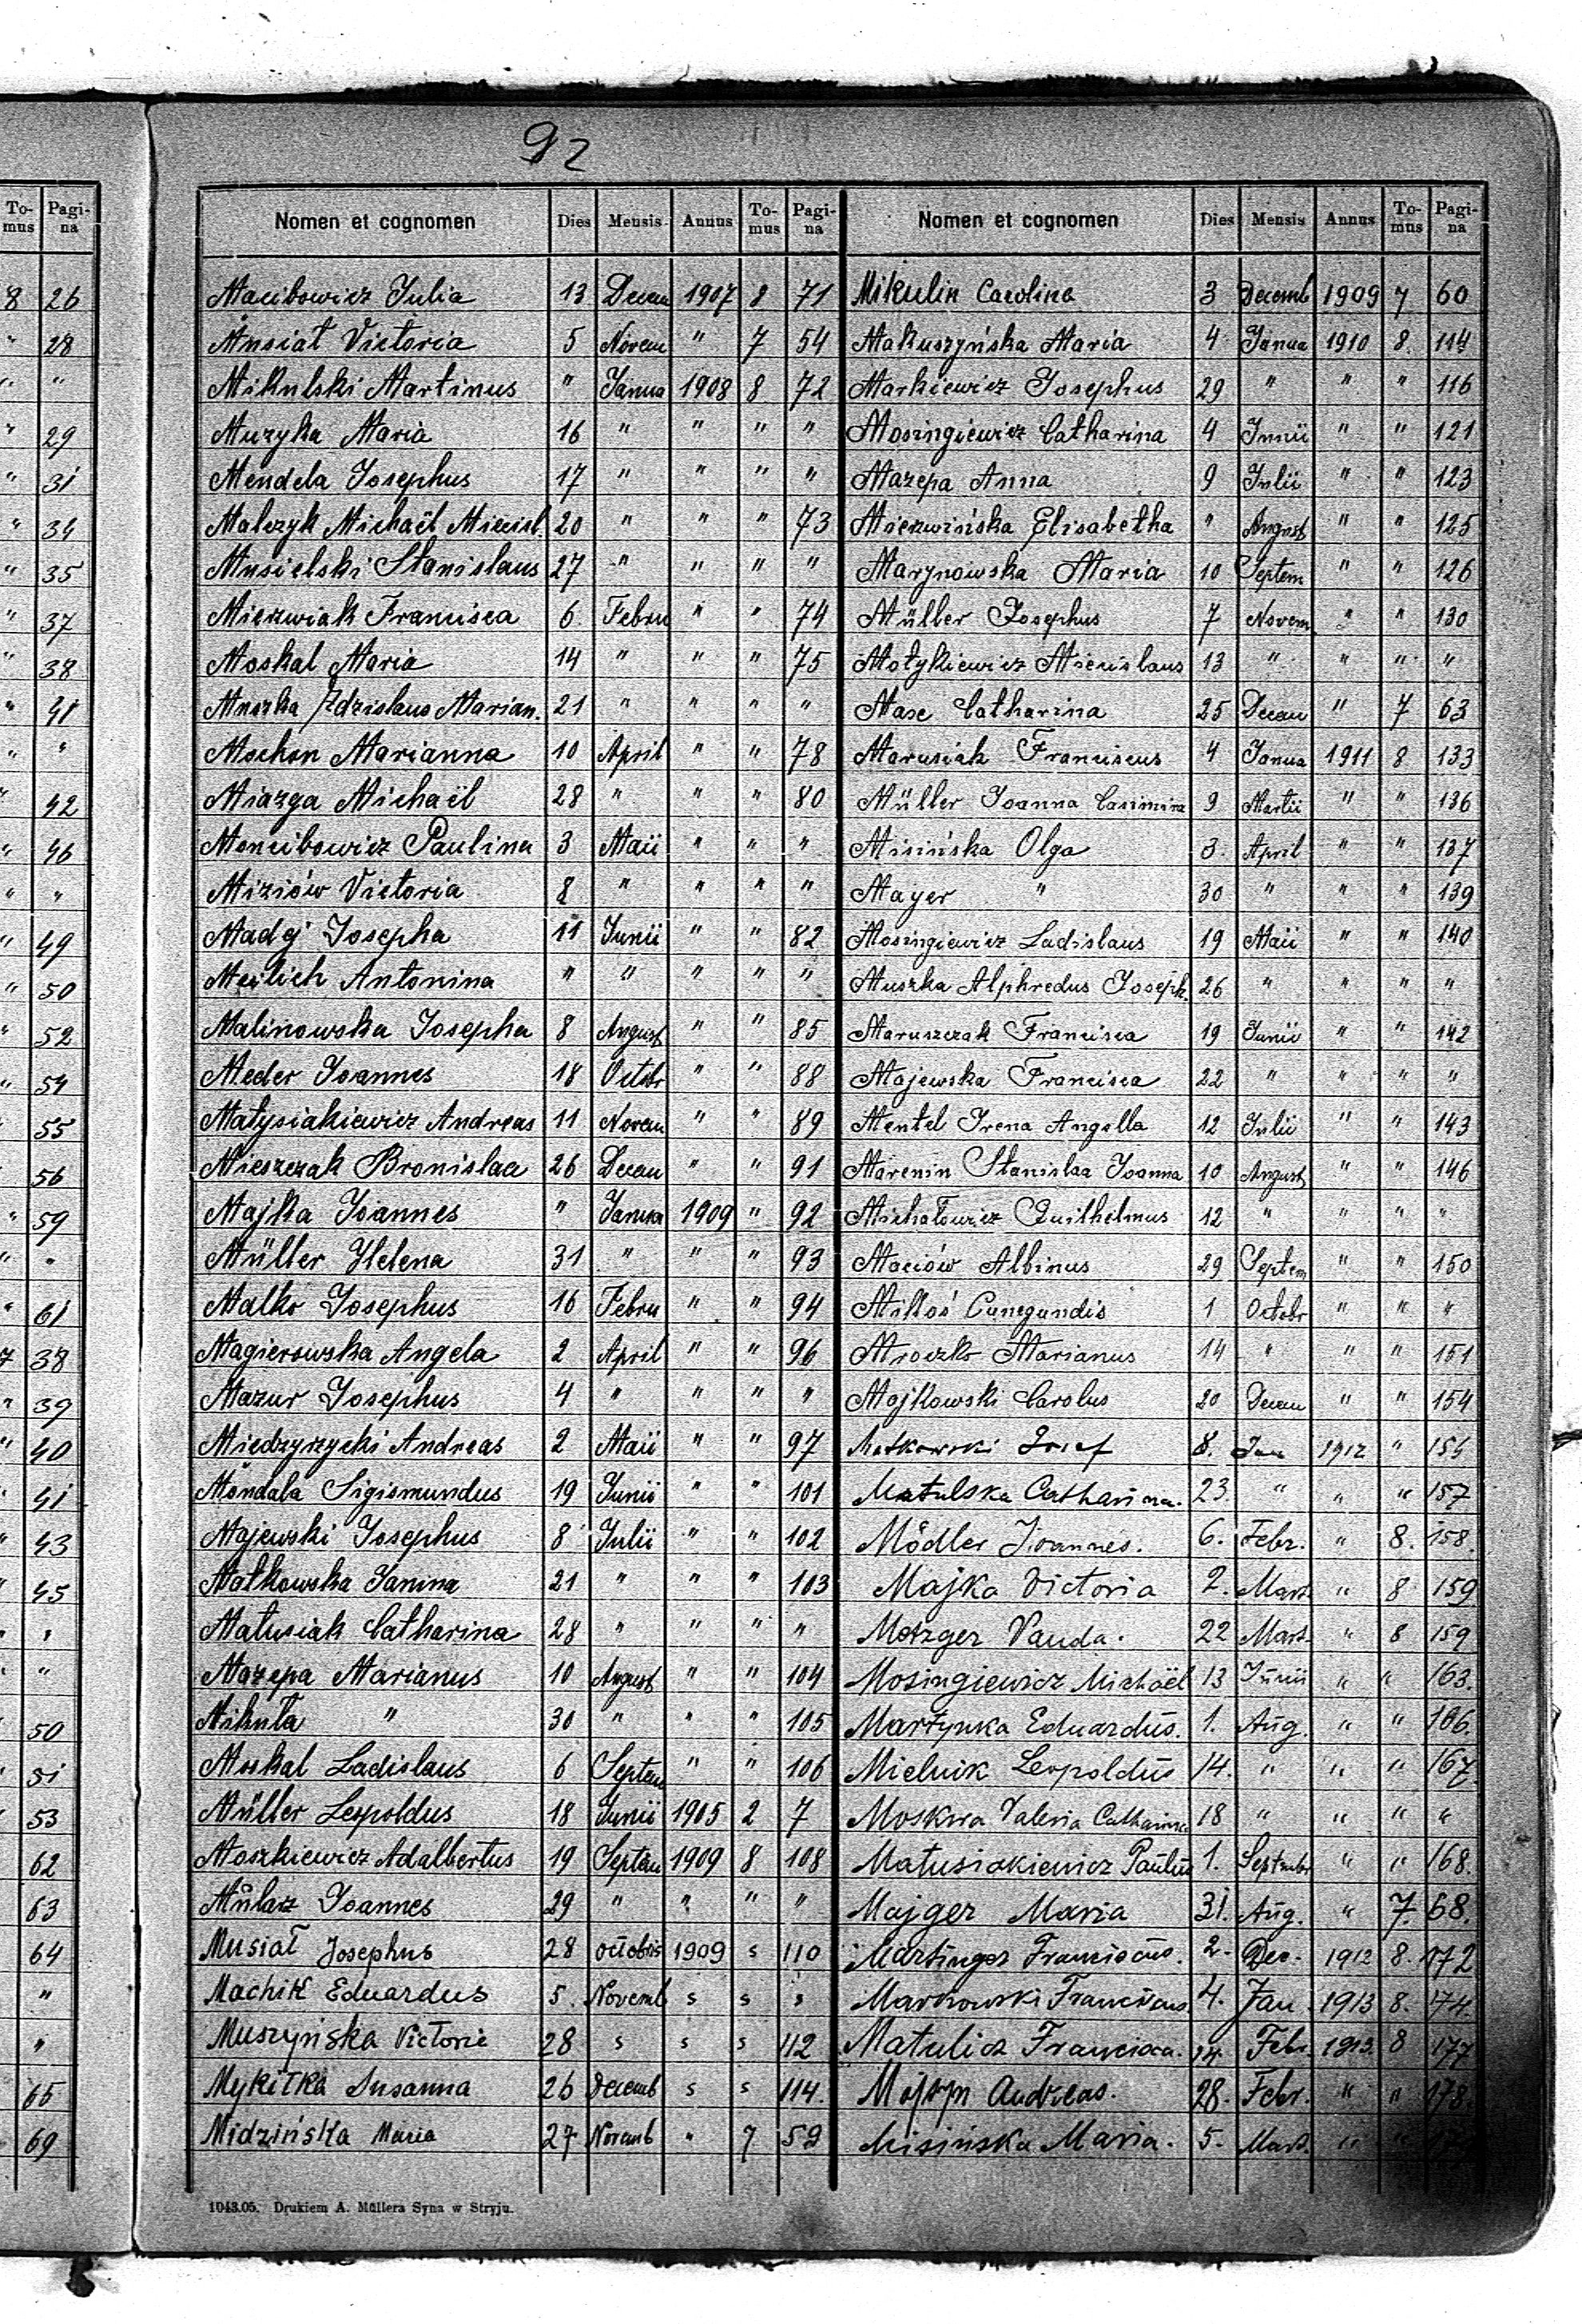 92
To- mus Pagi- na
8 26
" 28
" "
" 29
" 31
" 34
" 35
" 37
" 38
" 41
" "
" 42
" 46
" "
" 49
" 50
" 52
" 54
" 55
" 56
" 59
" "
" 61
7 38
" 39
" 40
" 41
" 43
" 45
" "
" "
" 50
" 51
" 53
62
63
64
"
"
65
69
Nomen et cognomen Dies Mensis Annus To- mus Pagi- na
Macibowicz Julia 13 Decem 1907 8 71
Musiał Victoria 5 Novem " 7 54
Mikulski Martinus " Janua 1908 8 72
Muzyka Maria 16 " " " "
Mendela Josephus 17 " " " "
Malczyk Michaël Miecisl. 20 " " " 73
Musielski Stanislaus 27 " " " "
Mierzwiak Francisca 6 Febru " " 74
Moskal Maria 14 " " " 75
Muszka Zdzislaus Marian. 21 " " " "
Mochon Marianna 10 April " " 78
Miazga Michaël 28 " " " 80
Moncibowicz Paulina 3 Maii " " "
Miziów Victoria 8 " " " "
Madej Josepha 11 Junii " " 82
Meilich Antonina " " " " "
Malinowska Josepha 8 August " " 85
Meder Joannes 18 Octobr " " 88
Matysiakiewicz Andreas 11 Novem " " 89
Mieszczak Bronislaa 26 Decem " " 91
Majka Joannes " Janua 1909 " 92
Müller Helena 31 " " " 93
Malko Josephus 16 Febru " " 94
Magierowska Angela 2 April " " 96
Mazur Josephus 4 " " " "
Miedzyrzycki Andreas 2 Maii " " 97
Mondala Sigismundus 19 Junii " " 101
Majewski Josephus 8 Julii " " 102
Małkowska Janina 21 " " " 103
Matusiak Catharina 28 " " " "
Mazepa Marianus 10 August " " 104
Mikuła " 30 " " " 105
Moskal Ladislaus 6 Septem " " 106
Müller Leopoldus 18 Junii 1905 2 7
Moszkiewicz Adalbertus 19 Septem 1909 8 108
Mularz Joannes 29 " " " "
Musiał Josephus 28 octobris 1909 s 110
Machik Eduardus 5. Novemb s s s
Muszyńska Victoria 28 s s s 112
Mykitka Susanna 26 Decemb s s 114.
Midzińska Maria 27 Novemb " 7 59
Nomen et cognomen Dies Mensis Annus To- mus Pagi- na
Mikulin Carolina 3 Decemb 1909 7 60
Makuszyńska Maria 4 Janua 1910 8. 114
Markiewicz Josephus 29 " " " 116
Mosingiewicz Catharina 4 Junii " " 121
Mazepa Anna 9 Julii " " 123
Mierzwińska Elisabetha " August " " 125
Marynowska Maria 10 Septem " " 126
Müller Josephus 7 Novem " " 130
Motykiewicz Miecislaus 13 " " " "
Mase Catharina 25 Decem " 7 63
Marusiak Franciscus 4 Janua 1911 8 133
Müller Joanna Casimira 9 Martii " " 136
Misińska Olga 3. April " " 137
Mayer " 30 " " " 139
Mosingiewicz Ladislaus 19 Maii " " 140
Muszka Alphredus Joseph. 26 " " " "
Maruszczak Francisca 19 Junii " " 142
Majewska Francisca 22 " " " "
Mentel Irena Angella 12 Julii " " 143
Marenin Stanislaa Joanna 10 August " " 146
Michałowicz Guilhelmus 12 " " " "
Maciów Albinus 29 Septem " " 150
Miłoś Cunegundis 1 Octobr " " "
Mroczko Marianus 14 " " " 151
Majkowski Carolus 20 Decem " " 154
Matkowski Josef 8. Jan 1912 "
Matulska Catharina. 23. " " " 157
Mödler Joannes. 6. Febr. " 8. 158.
Majka Victoria 2. Mart. " 8 159
Metzger Vanda. 22 Mart. " 8 159
Mosingiewicz Michaël 13 Junii " " 163.
Martynka Eduardus. 1. Aug. " " 166.
Mielnik Leopoldus 14. " " " 167.
Moskwa Valeria Catharina 18 " " " "
Matusiakiewicz Paulus 1. Septembr " " 168.
Majger Maria 31. Aug. " 7. 68.
Martinger Franciscus. 2. Dec. 1912 8. 172
Markowski Franciscus 4. Jan. 1913 8. 174.
Matulia Francisca. 14. Febr. 1913. 8 177
Andreas. 28. Febr. " " 178.
Misińska Maria. 5. Mart. " "
1043.05. Drukiem A. Müllera Syna w Stryju.